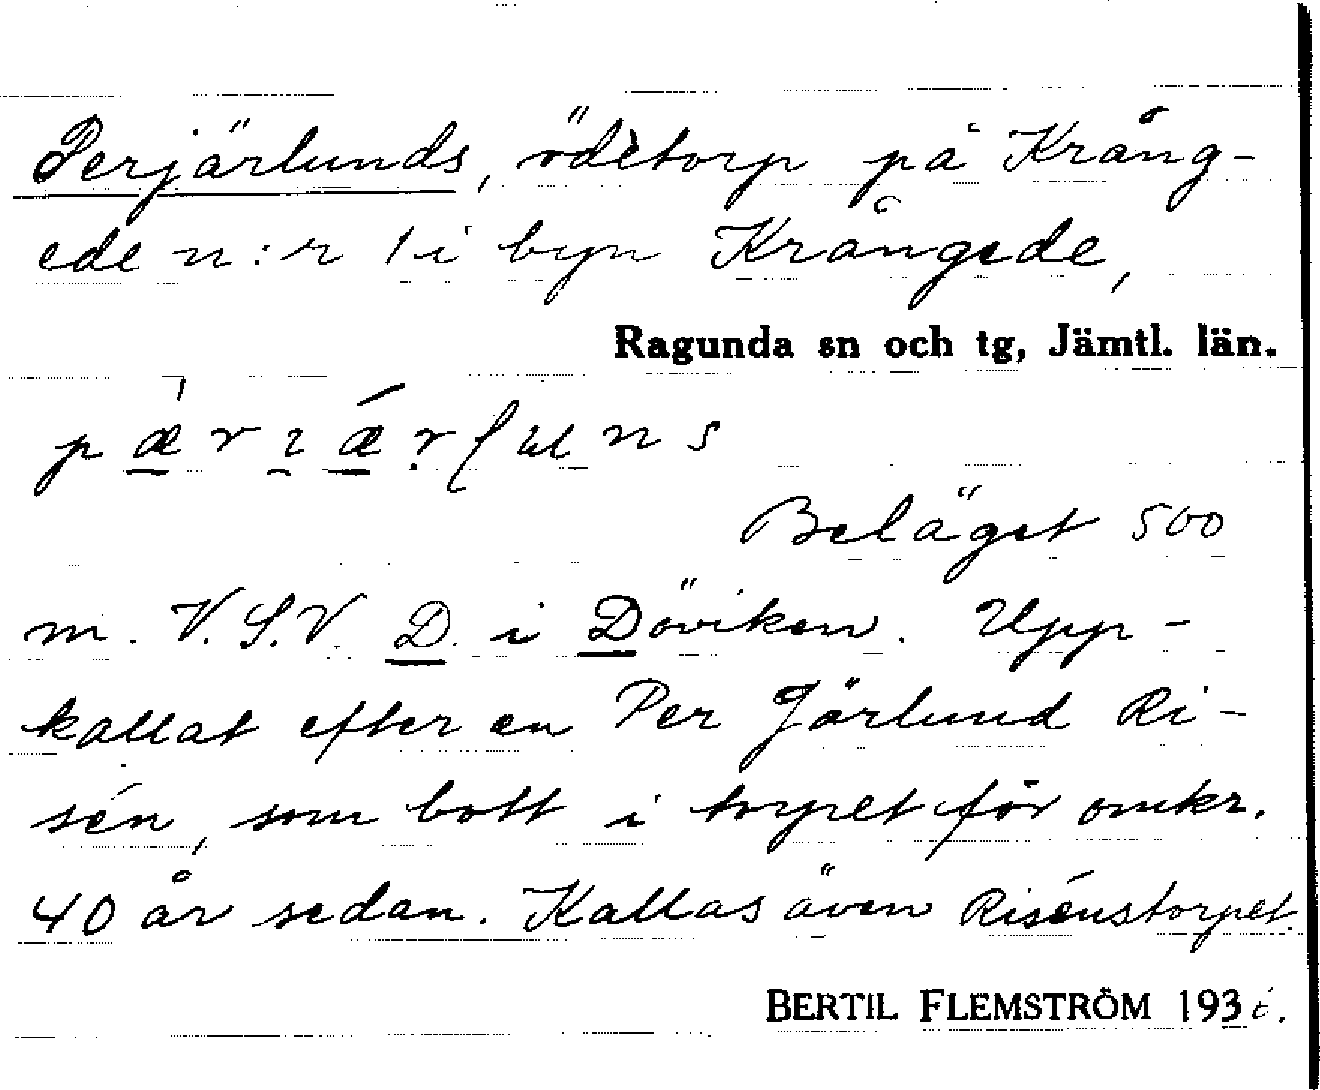 Perjärlunds, ödetorp på Krång-
ede n:r 1 i byn Krångede,
Ragunda sn och tg, Jämtl. län.
Beläget 500
m. V.S.V. D. i Döviken. Upp-
kallat efter en Per Järlund Ri-
sén, som bott i torpet för omkr.
40 år sedan. Kallas även Risénstorpet.
BERTIL FLEMSTRÖM 193